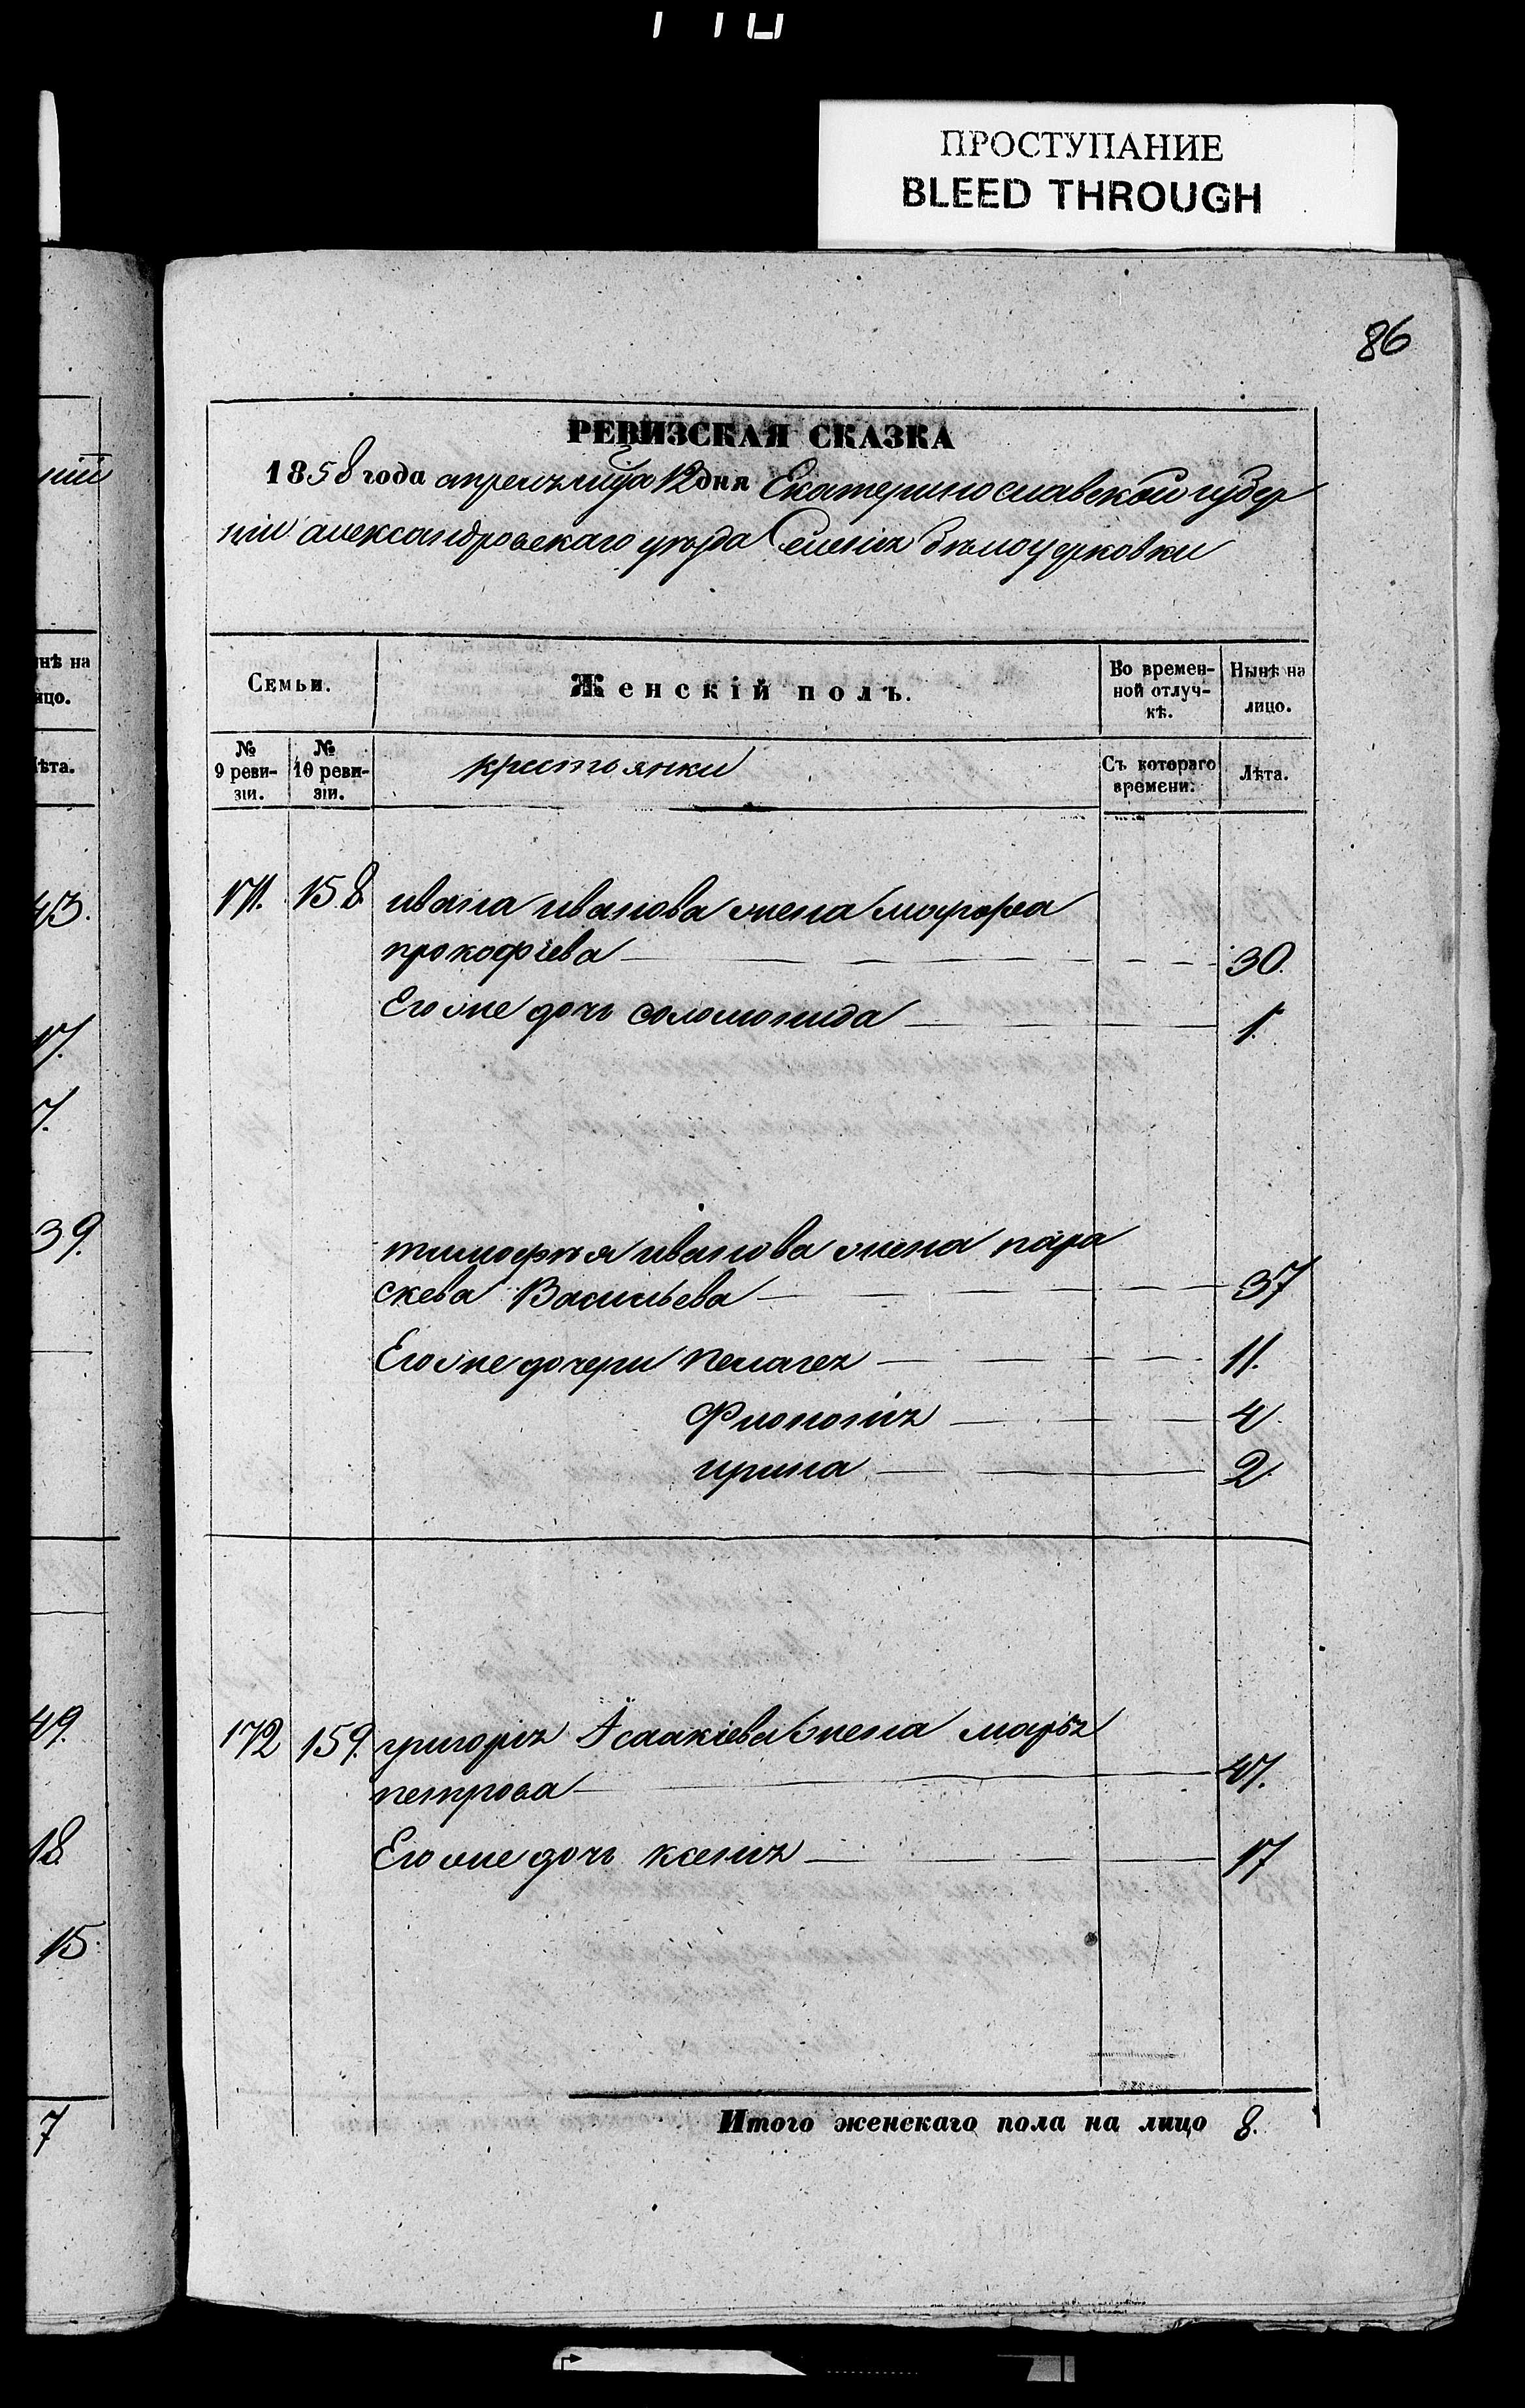 ПРОСТУПАНИЕ
BLEED THROUGH
86
РЕВИЗСКАЯ СКАЗКА
1858 года апреля мца 12 дня Екатеринославской губер
ніи александровскаго уѣзда Селенія бѣлоцерковки
Семьи.
Женскій полъ.
Во времен-
ной отлуч-
кѣ.
Нынѣ на
лицо.
№
9 реви-
зіи.
№
10 реви-
зіи.
крестьянки
Съ котораго
времени.
Лѣта.
171. 158 ивана иванова жена марфа
прокофіева 30.
Его же дочь соломонида 1.
тимофѣя иванова жена пара
скева Васильева 37
Его же дочери пелагея 11.
Фиононія 4.
ирина 2.
172 159. григорія Исаакіева жена марья
петрова 47.
Его же дочь ксенія 17
Итого женскаго пола на лицо 8.
нѣ на
ицо.
ѣта.
43.
17.
7.
39.
49.
18.
15.
7